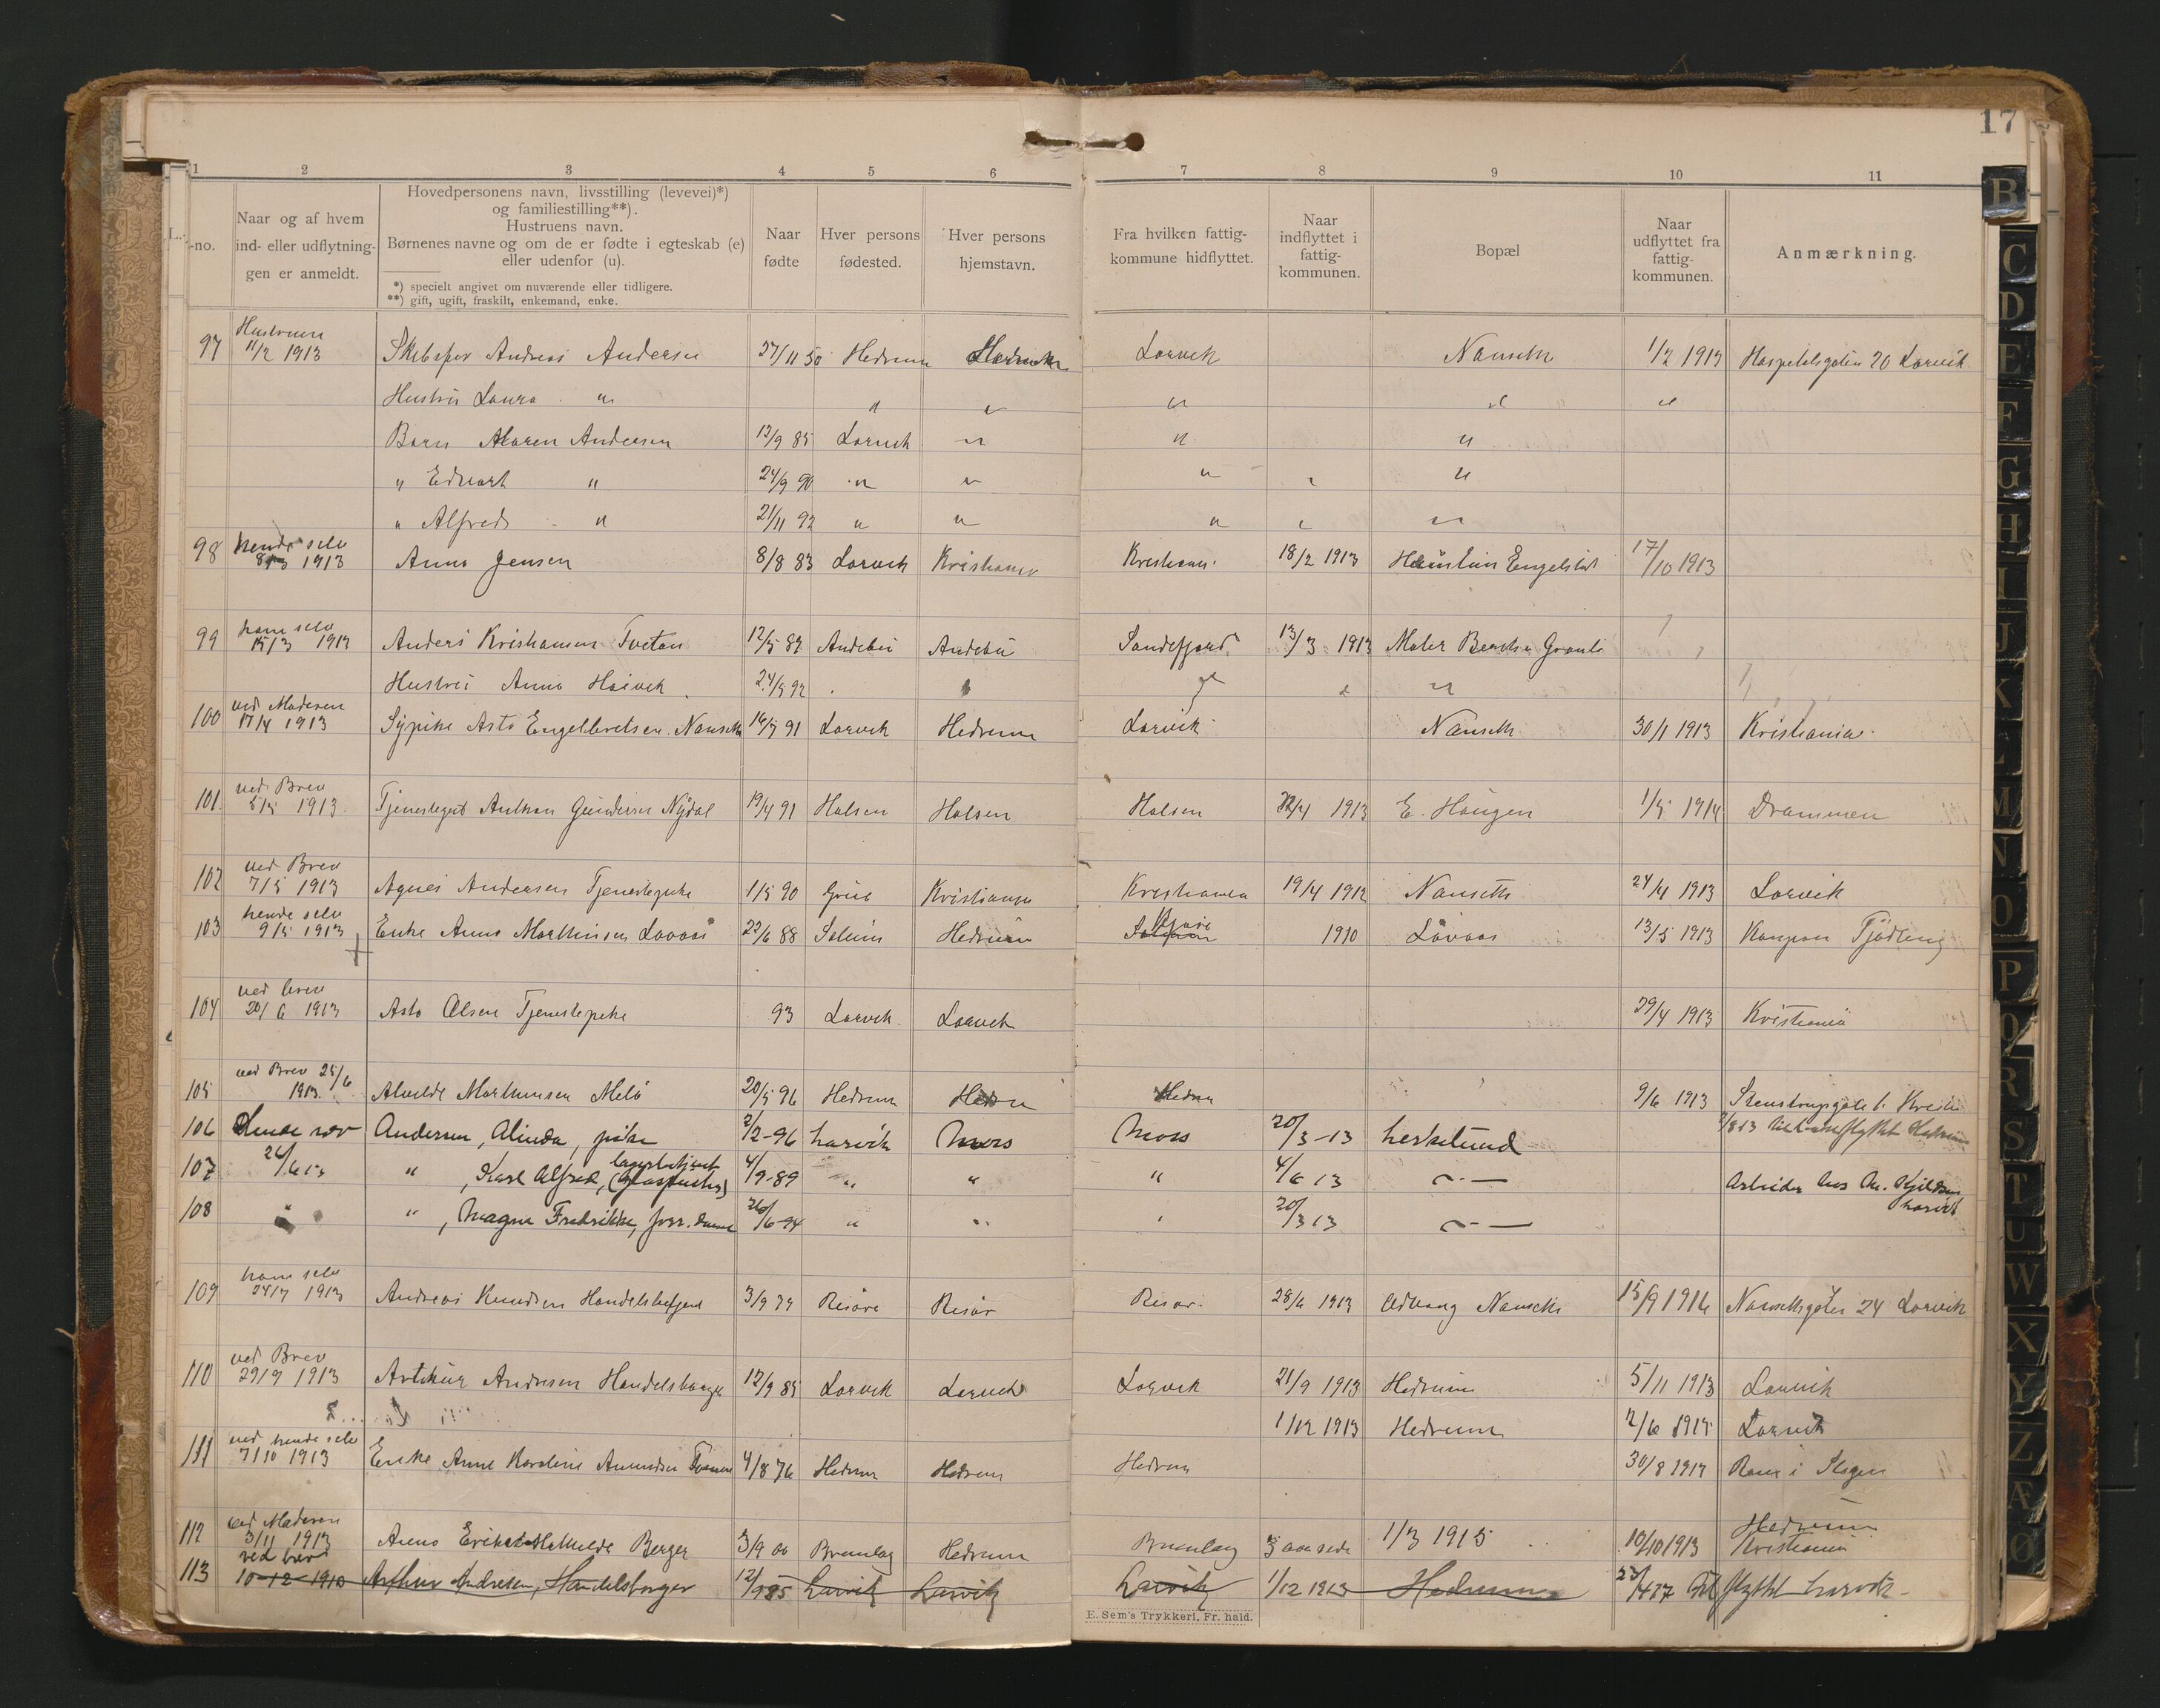 17
1 2 3 4 5 6 7 8 9 10 11
L.-no.
Naar og af hvem ind- eller udflytningen er anmeldt.
Hovedpersonens navn, livsstilling (levevei)*) og familiestilling**).
Hustruens navn.
Børnenes navne og om de er fødte i egteskab (e) eller udenfor (u).
*) specielt angivet om nuværende eller tidligere.
**) gift, ugift, fraskilt, enkemand, enke.
Naar fødte
Hver persons fødested.
Hver persons hjemstavn.
Fra hvilken fattigkommune hidflyttet.
Naar indflyttet i fattigkommunen.
Bopæl
Naar udflyttet fra fattigkommunen.
Anmærkning.
97 Hustruen 11/2 1913 Andreas Andersen 27/11 50 Hedrum Larvik Nanseth 1/2 1913 Hospitalsgaten 20 Larvik
Hustru Laura " " " " " "
Barn Andersen 12/9 85 Larvik " " "
" Edvart " 24/9 90 " " " "
" Alfred " 21/11 92 " " " "
98 hende selv 1913 Anna Jensen 8/8 83 Larvik Kristiania Kristiania 18/2 1913 17/10 1913
99 ham selv 15/3 1913 Anders Kristiansen Tveten 12/5 82 Andebu Andebu Sandefjord 13/3 1913 Maler
Hustru Anna 24/5 92
100 ved Moderen 17/4 1913 Sypike Asta Engelbretsen Nanseth 16/5 91 Larvik Hedrum Larvik Nanseth 30/1 1913 Kristiania
101 ved Brev 5/5 1913 Tjenestegut Gundersen Nydal 19/4 91 Halsen Halsen Halsen 22/4 1913 E. Haugen 1/5 1914 Drammen
102 ved Brev 7/5 1913 Agnes Andersen Tjenestepike 1/5 90 Grue Kristiania Kristiania 19/4 1912 Nanseth 24/4 1913 Larvik
103 hende selv 9/5 1913 Enke Anna Lovaas 22/6 88 Solum Hedrum 1910 Lövaas 13/5 1913 Tjödling
104 ved brev 20/6 1913 Asta Olsen Tjenestepike 93 Larvik Larvik 29/4 1913 Kristiania
105 ved Brev 25/6 1913 Melö 20/5 96 Hedrum Hedrum Hedrum 9/6 1913
106 Andersen, Alinda, pike 2/2-96 Larvik Moss Moss 20/3-13
107 26/6 13 " , Karl Alfred, 4/9-89 " " " 4/6 13 Arbeider hos Larvik
108 " " , Magna Fredrikke, 26/6-94 " " " 20/3 13
109 ham selv 24/7 1913 Andreas Knudsen Handelsbetjent 3/9 79 Risör Risör Risör 28/6 1913 Nanseth 15/9 1916 Nansethgaten 24 Larvik
110 ved Brev 29/9 1913 Arthur Andresen Handelsborger 12/9 85 Larvik Larvik Larvik 21/9 1913 Hedrum 5/11 1913 Larvik
1/12 1913 Hedrum 2/6 Larvik
111 ved hende selv 7/10 1913 Enke Anne Karoline Amundsen 4/8 76 Hedrum Hedrum Hedrum 30/8 i
112 ved Moderen 3/11 1913 Anna Berger 3/9 00 Brunlag Hedrum Brunlag 1/3 1915 10/10 1913 Hedrum Kristiania
113 ved brev 10-12-1913 Arthur Andresen, Handelsborger 12/9 85 Larvik Larvik Larvik 1/12 1913 Hedrum 23/4 17 flyttet Larvik
E. Sem's Trykkeri, Fr. hald.
B
C
D
E
F
G
H
I
J
K
L
M
N
O
P
Q
R
S
T
U
W
X
Y
Z
Æ
Ø